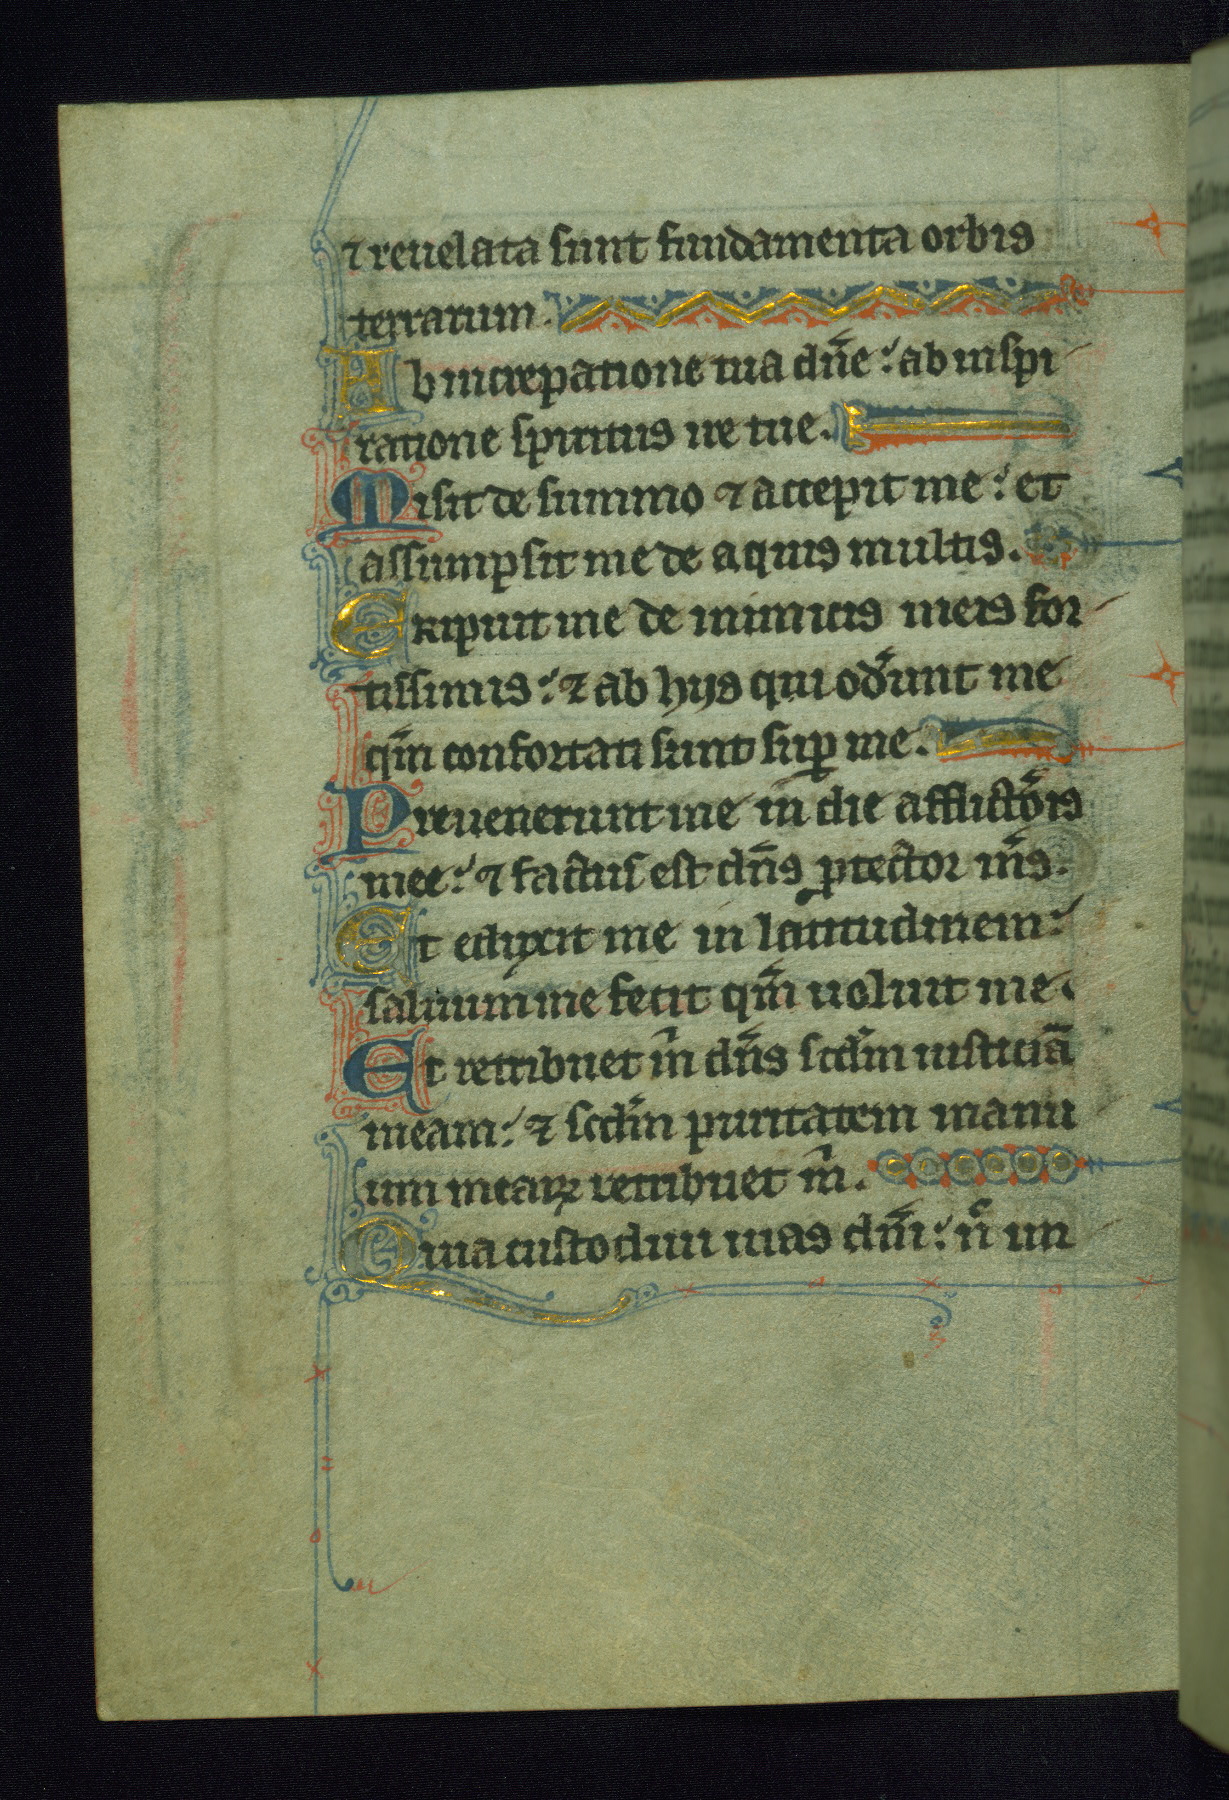 ⁊ reuelata sunt fundamenta orbis
terrarum.
Ab increpatione tua dn̄e: ab inspi
ratione spiritus ire tue.
Misit de summo ⁊ accepit me: et
assumpsit me de aquis multis.
Eripuit me de inimicis meis for
tissimis: ⁊ ab hijs qui oderunt me
qm̄ confortati sunt suꝑ me.
Preuenerunt me in die afflictōis
mee: ⁊ factus est dn̄s ꝓtector m̄s.
Et eduxit me in latitudinem:
saluum me fecit qm̄ uoluit me.
Et retribuet m̄ dn̄s scd̄m iusticiā
meam: ⁊ scd̄m puritatem manu
um mearꝝ retribuet m̄.
Quia custodiui uias dn̄i: n̄ im